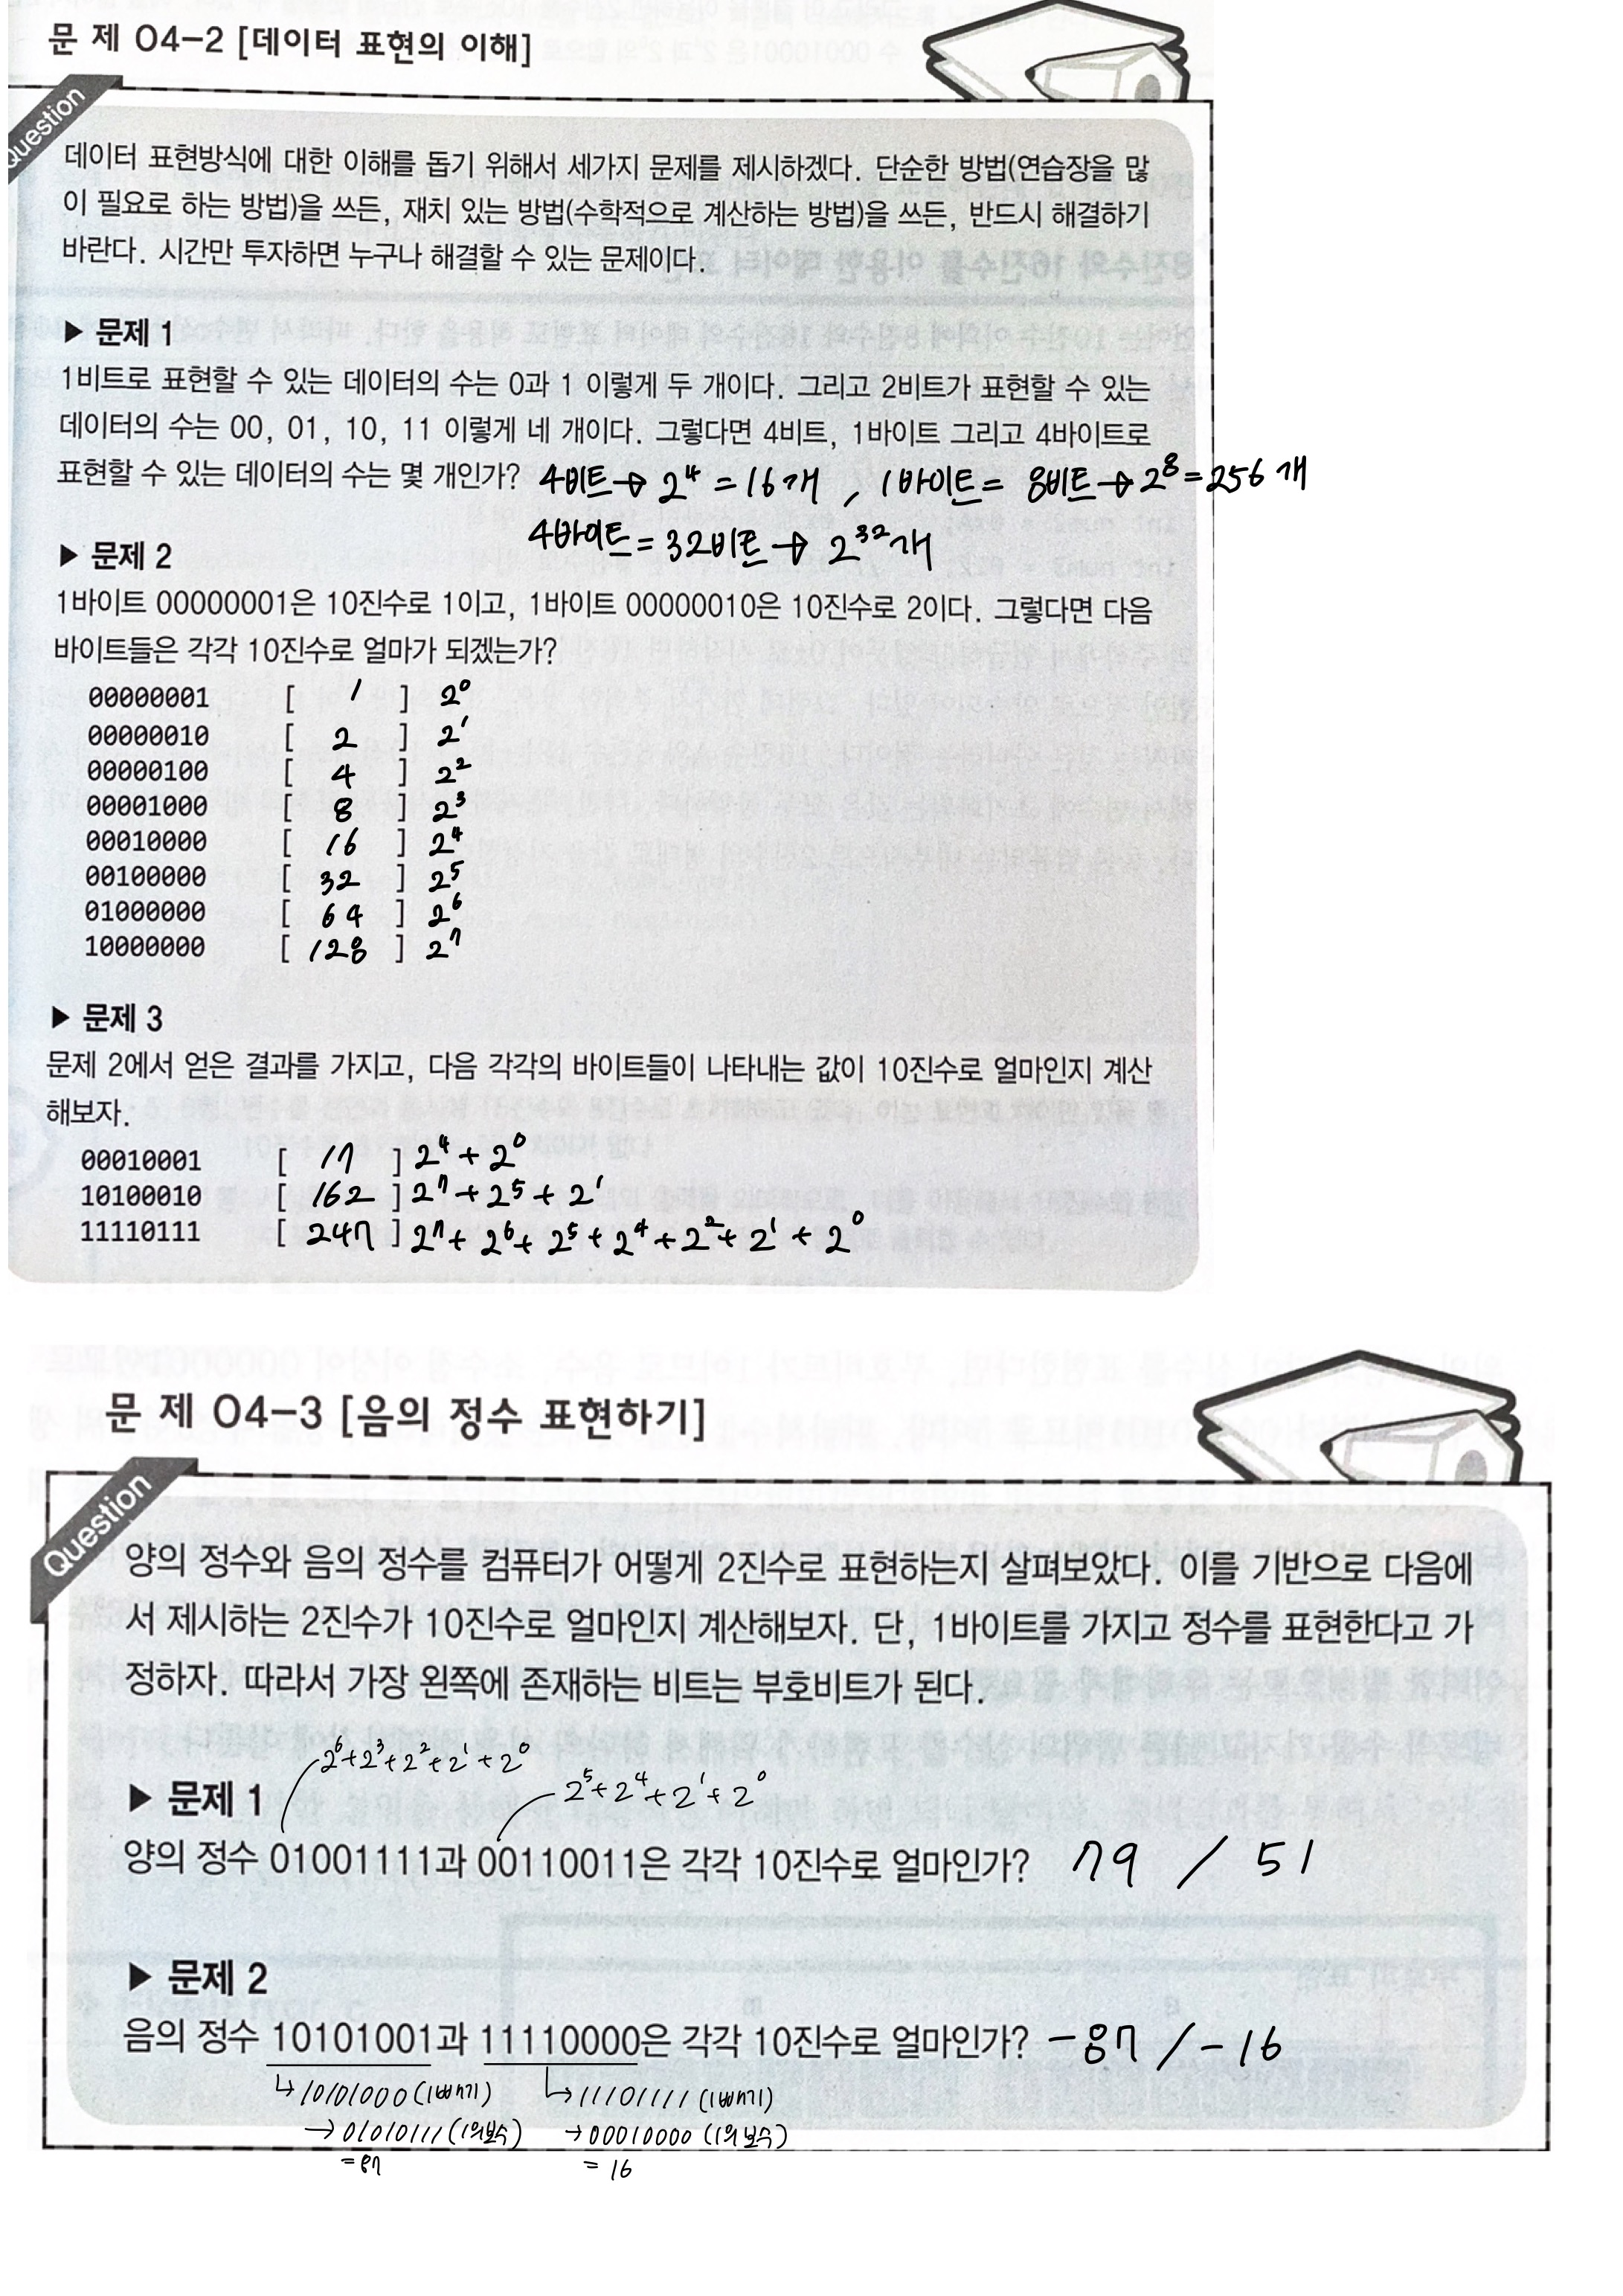 문 제 04-2 [데이터 표현의 이해]
Question
데이터 표현방식에 대한 이해를 돕기 위해서 세가지 문제를 제시하겠다. 단순한 방법(연습장을 많
이 필요로 하는 방법)을 쓰든, 재치 있는 방법(수학적으로 계산하는 방법)을 쓰든, 반드시 해결하기
바란다. 시간만 투자하면 누구나 해결할 수 있는 문제이다.
▶ 문제 1
1비트로 표현할 수 있는 데이터의 수는 0과 1 이렇게 두 개이다. 그리고 2비트가 표현할 수 있는
데이터의 수는 00, 01, 10, 11 이렇게 네 개이다. 그렇다면 4비트, 1바이트 그리고 4바이트로
표현할 수 있는 데이터의 수는 몇 개인가? 4비트→ 2⁴ = 16개 , 1바이트= 8비트→2⁸=256개
4바이트=32비트→ 2³²개
▶ 문제 2
1바이트 00000001은 10진수로 1이고, 1바이트 00000010은 10진수로 2이다. 그렇다면 다음
바이트들은 각각 10진수로 얼마가 되겠는가?
00000001 [ 1 ] 2⁰
00000010 [ 2 ] 2¹
00000100 [ 4 ] 2²
00001000 [ 8 ] 2³
00010000 [ 16 ] 2⁴
00100000 [ 32 ] 2⁵
01000000 [ 64 ] 2⁶
10000000 [ 128 ] 2⁷
▶ 문제 3
문제 2에서 얻은 결과를 가지고, 다음 각각의 바이트들이 나타내는 값이 10진수로 얼마인지 계산
해보자.
00010001 [ 17 ] 2⁴+2⁰
10100010 [ 162 ] 2⁷+2⁵+2¹
11110111 [ 247 ] 2⁷+2⁶+2⁵+2⁴+2²+2¹+2⁰
문 제 04-3 [음의 정수 표현하기]
Question
양의 정수와 음의 정수를 컴퓨터가 어떻게 2진수로 표현하는지 살펴보았다. 이를 기반으로 다음에
서 제시하는 2진수가 10진수로 얼마인지 계산해보자. 단, 1바이트를 가지고 정수를 표현한다고 가
정하자. 따라서 가장 왼쪽에 존재하는 비트는 부호비트가 된다.
2⁶+2³+2²+2¹+2⁰
▶ 문제 1
2⁵+2⁴+2¹+2⁰
양의 정수 01001111과 00110011은 각각 10진수로 얼마인가? 79 / 51
▶ 문제 2
음의 정수 10101001과 11110000은 각각 10진수로 얼마인가? -87 / -16
↳10101000 (1빼기) ↳11101111 (1빼기)
→01010111 (1의보수) →00010000 (1의보수)
=87 = 16